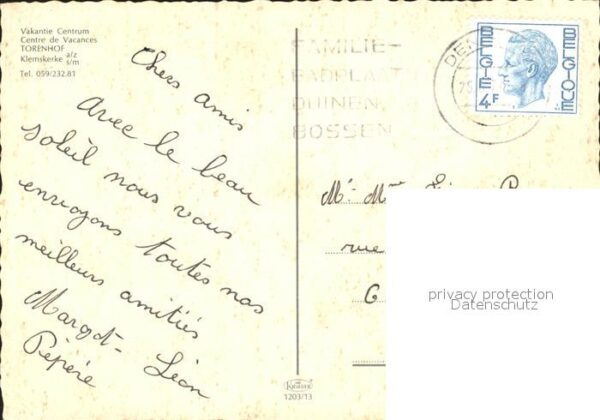 Vakantie Centrum
Centre de Vacances
TORENHOF
Klemskerke a/z s/m
Tel. 059/232.81
Chers amis
Avec le beau
soleil nous vous
envoyons toutes nos
meilleurs amitiés
Margot - Léon
Pépère
FAMILIE-
BADPLAAT
DUINEN,
BOSSEN
DE
75
BELGIE
4F
BELGIQUE
Mr. Mme
rue
6
privacy protection
Datenschutz
1203/13